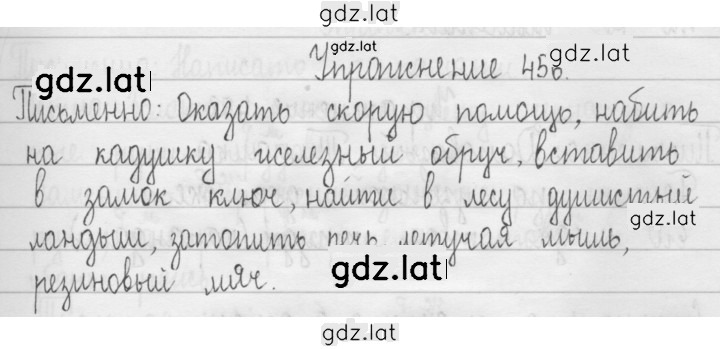 gdz.lat
gdz.lat
Упражнение 456.
gdz.lat
Письменно: Оказать скорую помощь, набить
на кадушку железный обруч, вставить
в замок ключ, найти в лесу душистый
gdz.lat
ландыш, затопить печь, летучая мышь,
gdz.lat
резиновый мяч.
gdz.lat